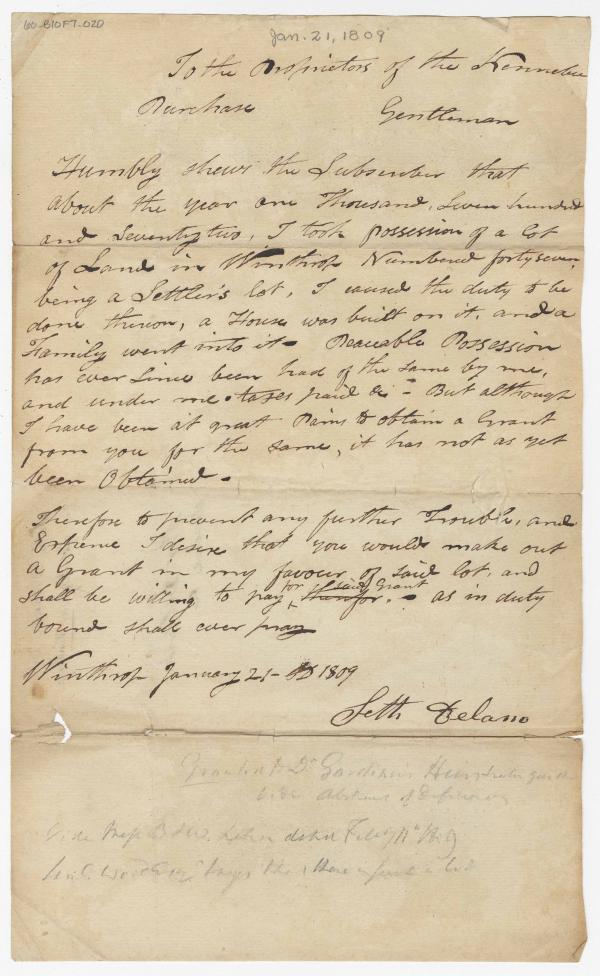 60-B10F7-020
Jan. 21, 1809
To the Proprietors of the Kennebec
Purchase Gentleman
Humbly shews the Subscriber that
about the year one Thousand, Seven hundred
and Seventy two, I took possession of a lot
of Land in Winthrop Numbered forty seven,
being a Settler's lot, I caused the duty to be
done thereon, a House was built on it, and a
Family went into it - Peaceable Possession
has ever Since been had of the same by me,
and under me - taxes paid &c - But although
I have been at great Pains to obtain a Grant
from you for the same, it has not as yet
been Obtained -
Therefore to prevent any further Trouble, and
Expence I desire that you would make out
a Grant in my favour of said lot, and
shall be willing to pay for said Grant - as in duty
bound shall ever pray
Winthrop January 21 - AD 1809
Seth Delano
Granted to Dr Gardiner's Heirs
vide
Vide dated Feby 11th
there